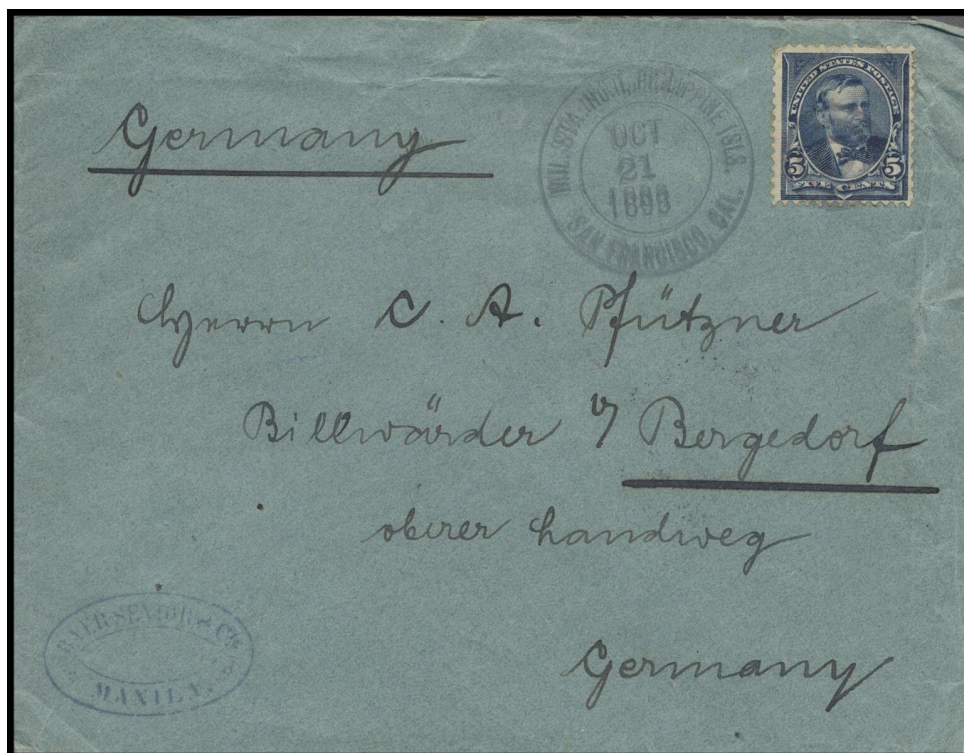 Germany
MIL. STA. NO. 1, PHILIPPINE ISLS.
OCT
21
1898
SAN FRANCISCO, CAL.
UNITED STATES POSTAGE
5 5
FIVE CENTS
Herrn C. A. Pfützner
Billwärder b/ Bergedorf
oberer Landweg
BAER SENIOR & Co
MANILA.
Germany